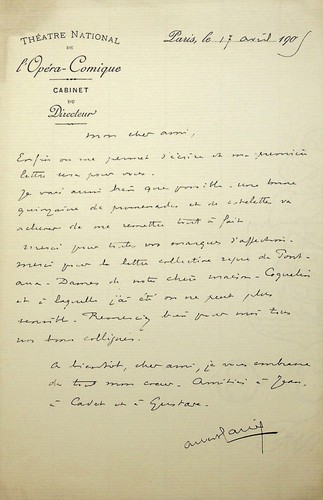 THÉATRE NATIONAL
DE
l'Opéra-Comique
CABINET
DU
Directeur
Paris, le 17 avril 1905
Mon cher ami,
Enfin on me permet d'écrire et ma première
lettre sera pour vous.
Je vais aussi bien que possible. Une bonne
quinzaine de promenades et de côtelettes va
achever de me remettre tout à fait.
Merci pour toutes vos marques d'affection.
Merci pour la lettre collective reçue de Pont-
aux-Dames de notre chère maison-Coquelin
et à laquelle j'ai été on ne peut plus
sensible. Remerciez bien pour moi tous
vos bons collègues.
A bientôt, cher ami, je vous embrasse
de tout mon coeur. Amitiés à Jean,
à Cadet et à Gustave.